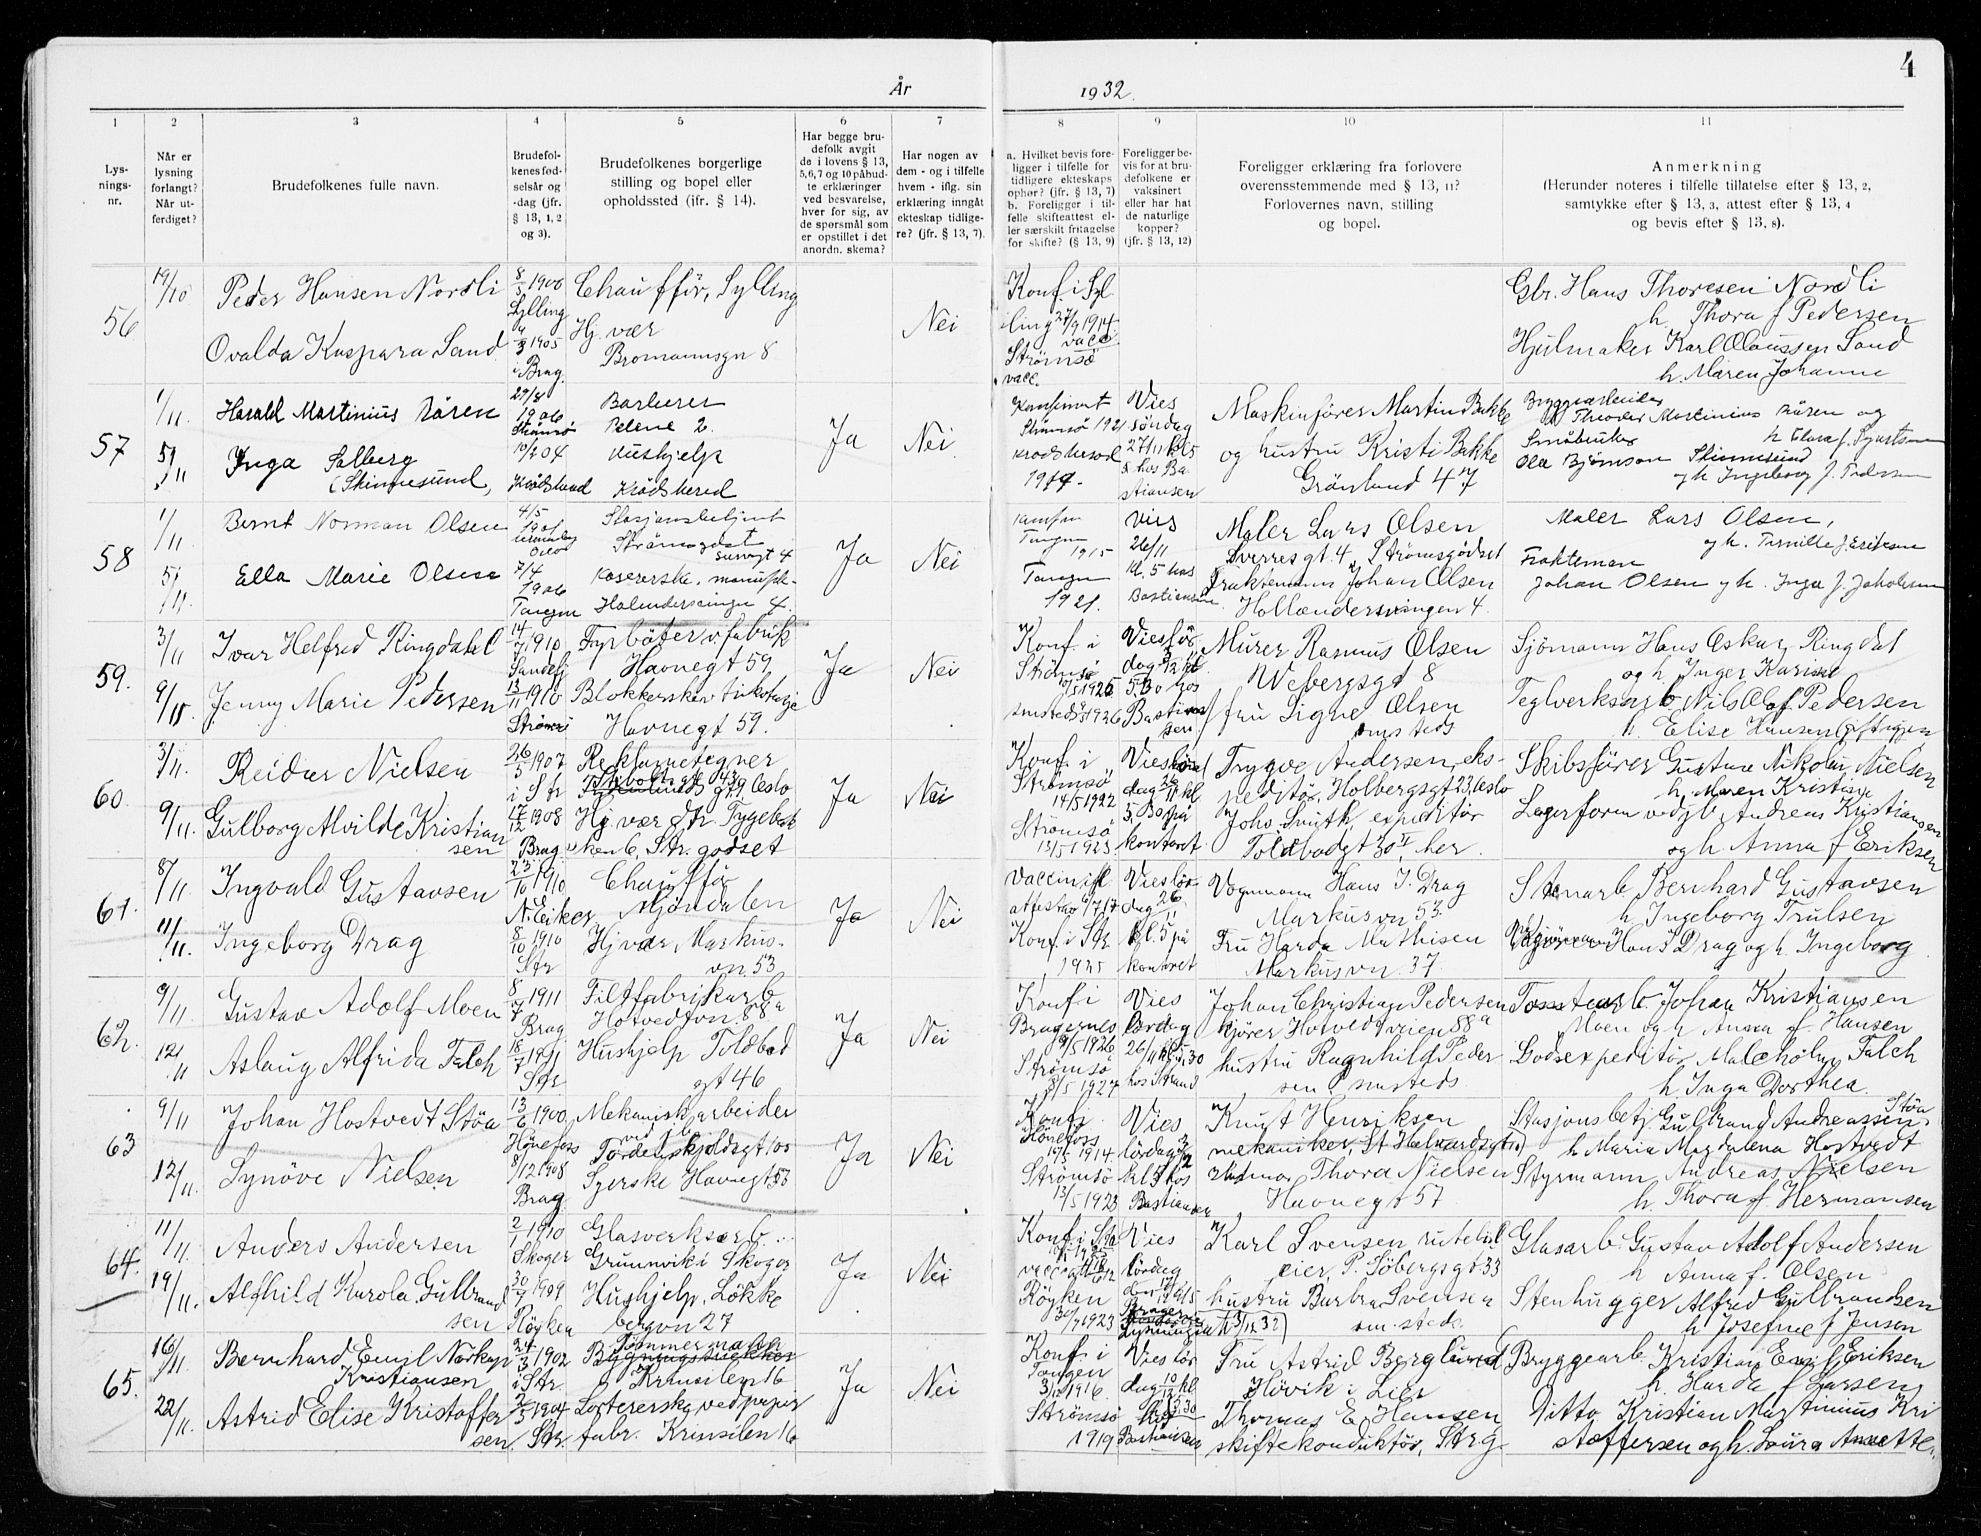 4
År
1932.
1
2
3
4
5
6
7
8
9
10
11
Lys-
nings-
nr.
Når er
lysning
forlangt?
Når ut-
ferdiget?
Brudefolkenes fulle navn.
Brudefol-
kenes fød-
selsår og
-dag (jfr.
§ 13, 1, 2
og 3).
Brudefolkenes borgerlige
stilling og bopel eller
opholdssted (ifr. § 14).
Har begge bru-
defolk avgit
de i lovens § 13,
5, 6, 7 og 10 påbud-
te erklæringer
ved besvarelse,
hver for sig, av
de spørsmål som
er opstillet i det
anordn. skema?
Har nogen av
dem - og i tilfelle
hvem - iflg. sin
erklæring inngått
ekteskap tidlige-
re? (jfr. § 13, 7).
a. Hvilket bevis fore-
ligger i tilfelle for
tidligere ekteskaps
ophør? (jfr. § 13, 7)
b. Foreligger i til-
felle skifteattest el-
ler særskilt fritagelse
for skifte? (§ 13, 9)
Foreligger be-
vis for at bru-
defolkene er
vaksinert
eller har hat
de naturlige
kopper?
(jfr. § 13, 12)
Foreligger erklæring fra forlovere
overensstemmende med § 13, 11?
Forlovernes navn, stilling
og bopel.
Anmerkning
(Herunder noteres i tilfelle tillatelse efter § 13, 2,
samtykke efter § 13, 3, attest efter § 13, 4
og bevis efter § 13, 8).
56
19/10
Peder Hansen Nordli
Ovalda Kaspara Sand
8/5 1900
Sylling
4/3 1905
i Brag.
Chauffør, Sylling
Hj. vær
Bromannsgn 8
Nei
Konf i Syl
ling 27/9 1914
vacc
Strømsø
vacc.
Gbr. Hans Thoresen Nordli
h. Thora f Pedersen
Hjulmaker Karl Olaussen Sand
h. Maren Johanne
57
1/11
5/11
Harald Martinius Løren
Inga Solberg
(Skinnesund,
27/8
1906
Strømsø
10/2 04
Krødsherad
Barberer
Pelene 2.
Hushjelp
Krødsherad
Ja
Nei
Konfirmert
Strømsø 1921
Krødsherad
1919-
Vies
søndag
27/11 kl 5
hos Ba
stiansen
Maskinfører Martin Bakke
og hustru Kristi Bakke
Grønland 47
Bryggearbeider
Theodor Martinius Løren og
h Clara f. Syvertsen
Småbruker
Ola Bjørnson Skinnesund
og h Ingeborg f. Pedersen
58
1/11
5/11
Bernt Norman Olsen
Ella Marie Olsen
4/5
1901
Oslo
7/4
1906
Tangen
Stasjonsbetjent
Strømsgodset
Sverresgt 4
Kasererske, manufak-
Holendersvingen 4.
Ja
Nei
Konfirm
Tangen
1915
Tangen
1921.
Vies
26/11
kl. 5 hos
Bastiansen
Maler Lars Olsen
Sverresgt. 4, Strømsgodset
Fraktemann Johan Olsen
Hollendersvingen 4.
Maler Lars Olsen,
og h. Pernille f. Eriksen
Frakteman
Johan Olsen og h. Inga f. Jakobsen
59.
3/11
9/11
Ivar Helfred Ringdahl
Jenny Marie Pedersen
14/7 1910
Sandefj
13/11 1910
Strømsø
Fyrbøter v fabrik
Havnegt 59
Blokkerske v trikotasje
Havnegt 59.
Ja
Nei
Konf. i
Strømsø
1925
smsteds 1926
Vies lør
dag 3/12 kl
5.30 hos
Bastian
sen
Murer Rasmus Olsen
Webergsgt 8
fru Signe Olsen
smsteds
Sjømann Hans Oskar Ringdal
og h. Inger Karine
Teglverksarb Nils Olaf Pedersen
h. Elise Hansen
60.
3/11.
9/11.
Reidar Nielsen
Gulborg Alvilde Kristian
sen
26/5 1907
i Str
17/12 1908
Brag.
Reklametegner
gt 9 Oslo
Hj. vær
6, Str. godset
Ja
Nei
Konf. i
Strømsø
14/5 1922
Strømsø
13/5 1923
Vies lør
dag 26/11 kl.
5.30 på
kontoret
Trygve Andersen, eks-
peditør, Holbergsgt 23, Oslo
Johs. Smith, expeditør
Tolbodgt 30 II, her.
Skibsfører Gustav Nikolai Nielsen
h. Maren Kristine
Lagerform ved jb. Andreas Kristiansen
og h. Anna f Eriksen
61.
8/11.
11/11.
Ingvald Gustavsen
Ingeborg Drag
23/10 1910
N. Eiker,
8/10 1910
Str
Chauffør
Mjøndalen
Hj vær, Markus-
vn. 53
Ja
Nei
Konf i Str
1925
Vies lør
dag 26/11
kl. 5 på
kontoret
Vognmann Hans J. Drag
Markusvn 53.
Fru Harda Mathisen
Markusvn. 37.
Stenarb. Bernhard Gustavsen
h. Ingeborg Trulsen
Hans J Drag og h. Ingeborg
62.
9/11.
12/11
Gustav Adolf Moen
Aslaug Alfrida Falch
8/7 1911
Brag
18/7 1911
Str
Filtfabrikarb
Hotvedtvn. 88a
Hushjelp Toldbod
gt 46
Ja
Nei
Konf i
Bragernes
9/5 1926
Strømsø
8/5 1927
Vies
lørdag
26/11 kl. 5.30
hos Strand
Johan Christian Pedersen
kjører Hotvedtveien 88a
hustru Ragnhild Peder
sen smsteds.
Johan Kristiansen
Moen og h Anna f. Hansen
Godsexpeditør Malchølm Falch
h. Inga Dorthea.
63
9/11
12/11.
Johan Hostvedt Støa
Synøve Nielsen
13/6 1900
Hønefoss
8/12 1908
Brag.
Mekanisk arbeider
Tordenskjoldsgt 100
Syerske Havnegt 57
Ja
Nei
Konf i
Hønefoss
1914
Strømsø
13/5 1923
Vies
lørdag 3/12
kl 5 hos
Bastiansen
Knut Henriksen
mekaniker, St Halvardsgt
Thora Nielsen
Havnegt 57
Stasjonsbetj. Gulbrand Andreassen Støa
h Maria Magdalena Hostvedt
Styrmann Andreas Nielsen
h. Thora f. Hermansen
64.
11/11.
19/11.
Anders Andersen
Alfhild Karola Gulbrand
sen
2/1 1910
Skoger
30/7 1909
Røyken
Glasverksarb...
Grunnvik i Skoger
Hushjelp, Løkke
bergvn 27
Ja
Nei
Konf. i Str
Røyken
1923
Vies
lørdag
Karl Svensen rutebil
eier, P. Søbergsgt. 33
hustru Barbra Svensen
sm. steds.
Glasarb. Gustav Adolf Andersen
h Anna f. Olsen
Stenhugger Alfred Gulbrandsen
h Josefine f Jensen
65.
16/11.
22/11.
Bernhard Emil Norkap
Kristiansen
Astrid Elise Kristoffer
sen.
24/3 1902
i Str.
1904
Str.
Tømmermann
Krinsilen 16
Sortererske ved papir
fabr. Krinsilen 16
Ja
Nei
Konf. i
Tangen
1916.
Strømsø
1919
Vies lør
dag 10/12 kl
5.30
hos
Bastiansen
Fru Astrid Berglund
Høvik i Lier
Thomas E. Hansen
skiftekonduktør, Strg.
Bryggearb. Kristian Emil Eriksen
h. Harda f Larsen
Ditto Kristian Martinius Kri
stoffersen og h. Laura Anette.